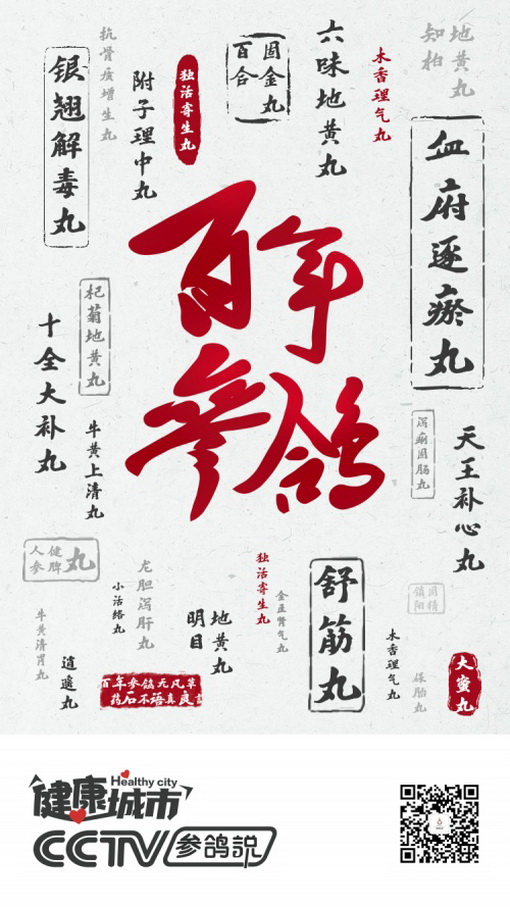 抗骨质增生丸
银翘解毒丸
附子理中丸
独活寄生丸
百合
固金丸
六味地黄丸
木香理气丸
知柏
地黄丸
血府逐瘀丸
百年
参鸽
杞菊地黄丸
十全大补丸
牛黄上清丸
泻痢固肠丸
天王补心丸
人参健脾丸
龙胆泻肝丸
小活络丸
牛黄清胃丸
逍遥丸
明目
地黄丸
独活寄生丸
金匮肾气丸
舒筋丸
木香理气丸
锁阳
固精
保胎丸
大蜜丸
百年参鸽无凡草
药石不语真良言
健康城市
Healthy city
CCTV 参鸽说